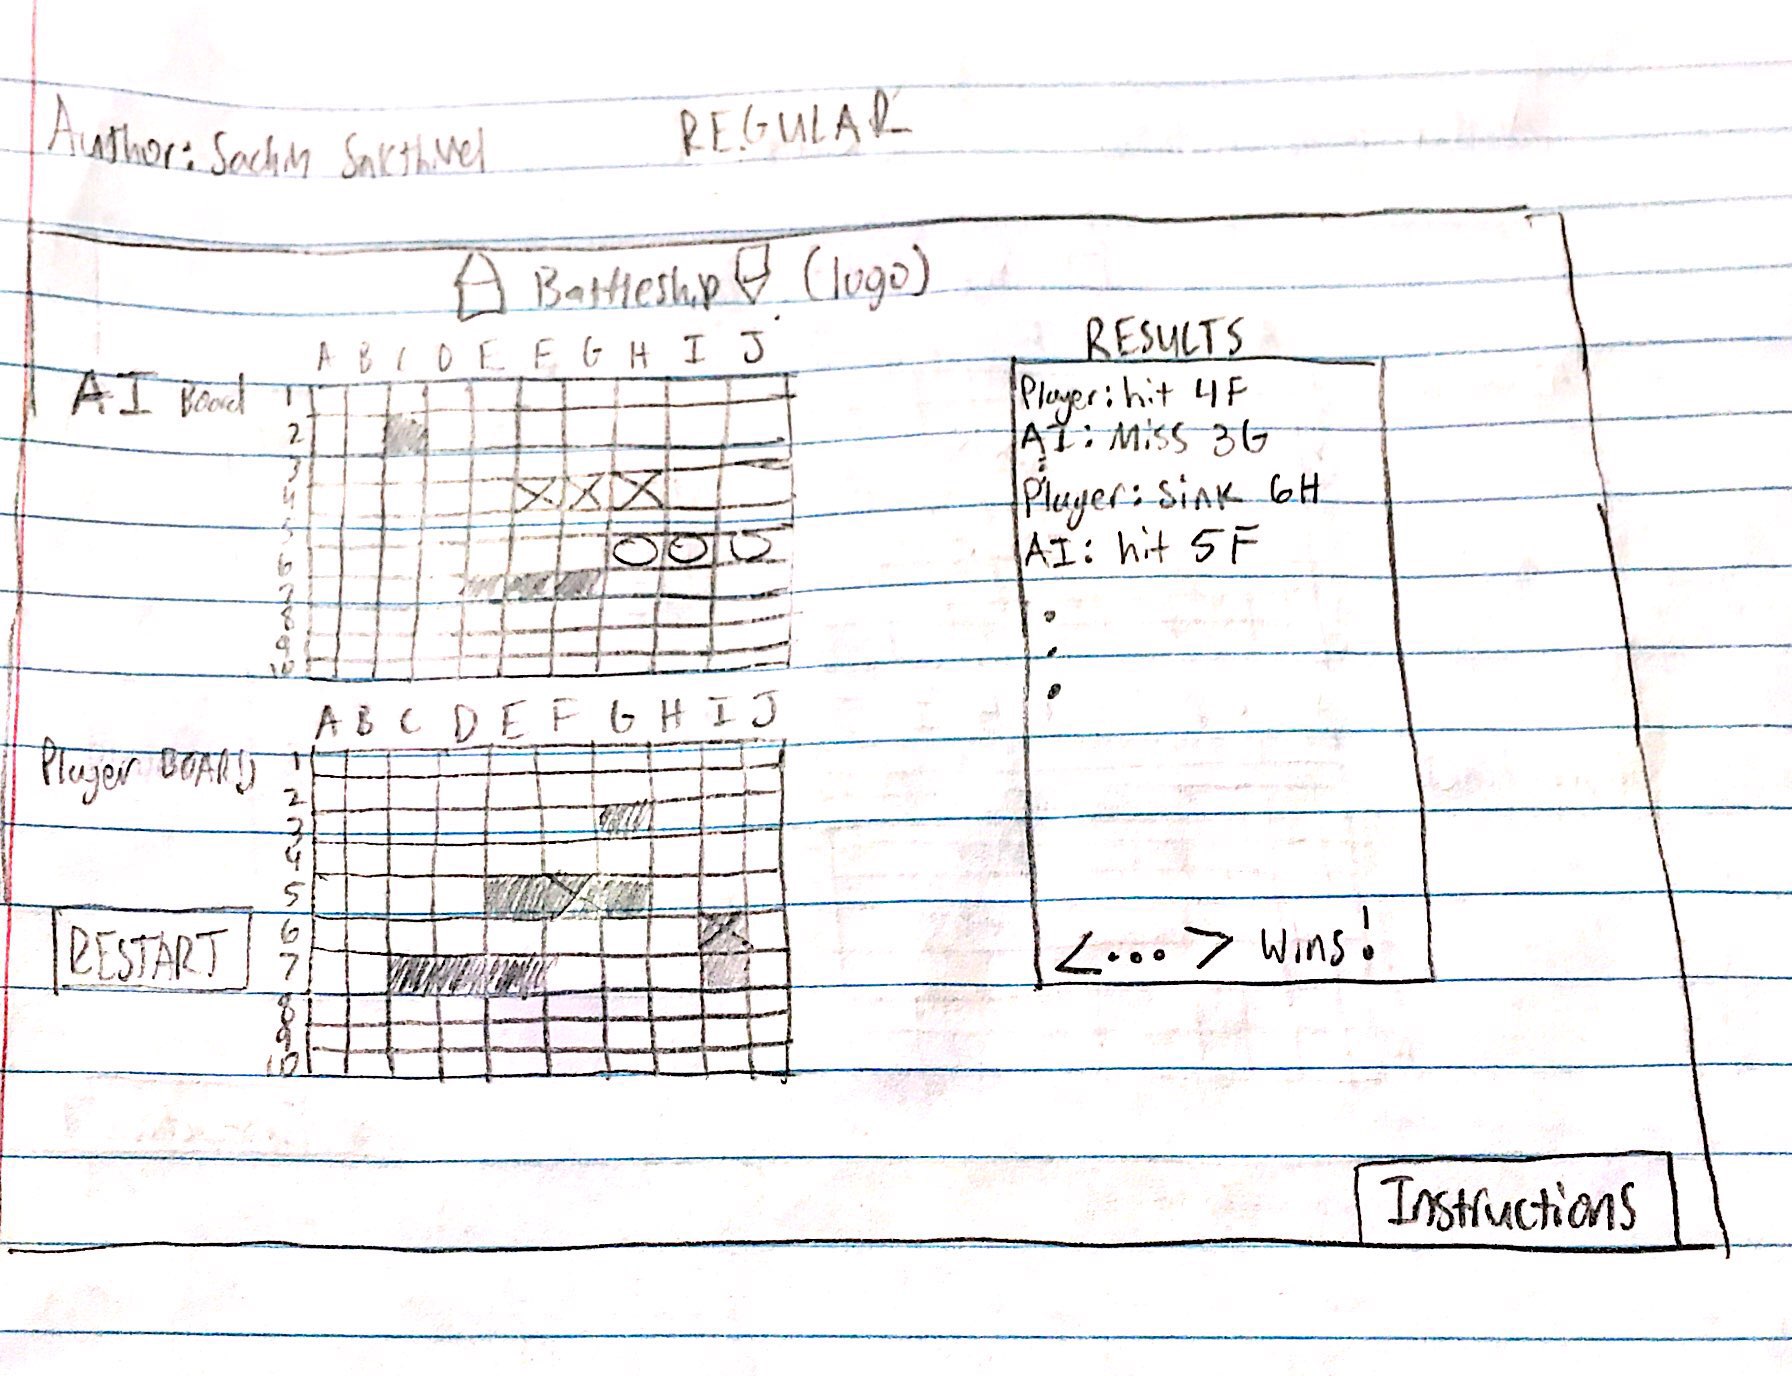 Author: Sachin Sakthivel
REGULAR
Battleship (logo)
A B C D E F G H I J
AI Board
1
2
3
4
5
6
7
8
9
10
A B C D E F G H I J
Player BOARD
1
2
3
4
5
6
7
8
9
10
RESTART
RESULTS
Player: hit 4F
AI: Miss 3G
:
Player: sink 6H
AI: hit 5F
.
.
.
<...> Wins!
Instructions